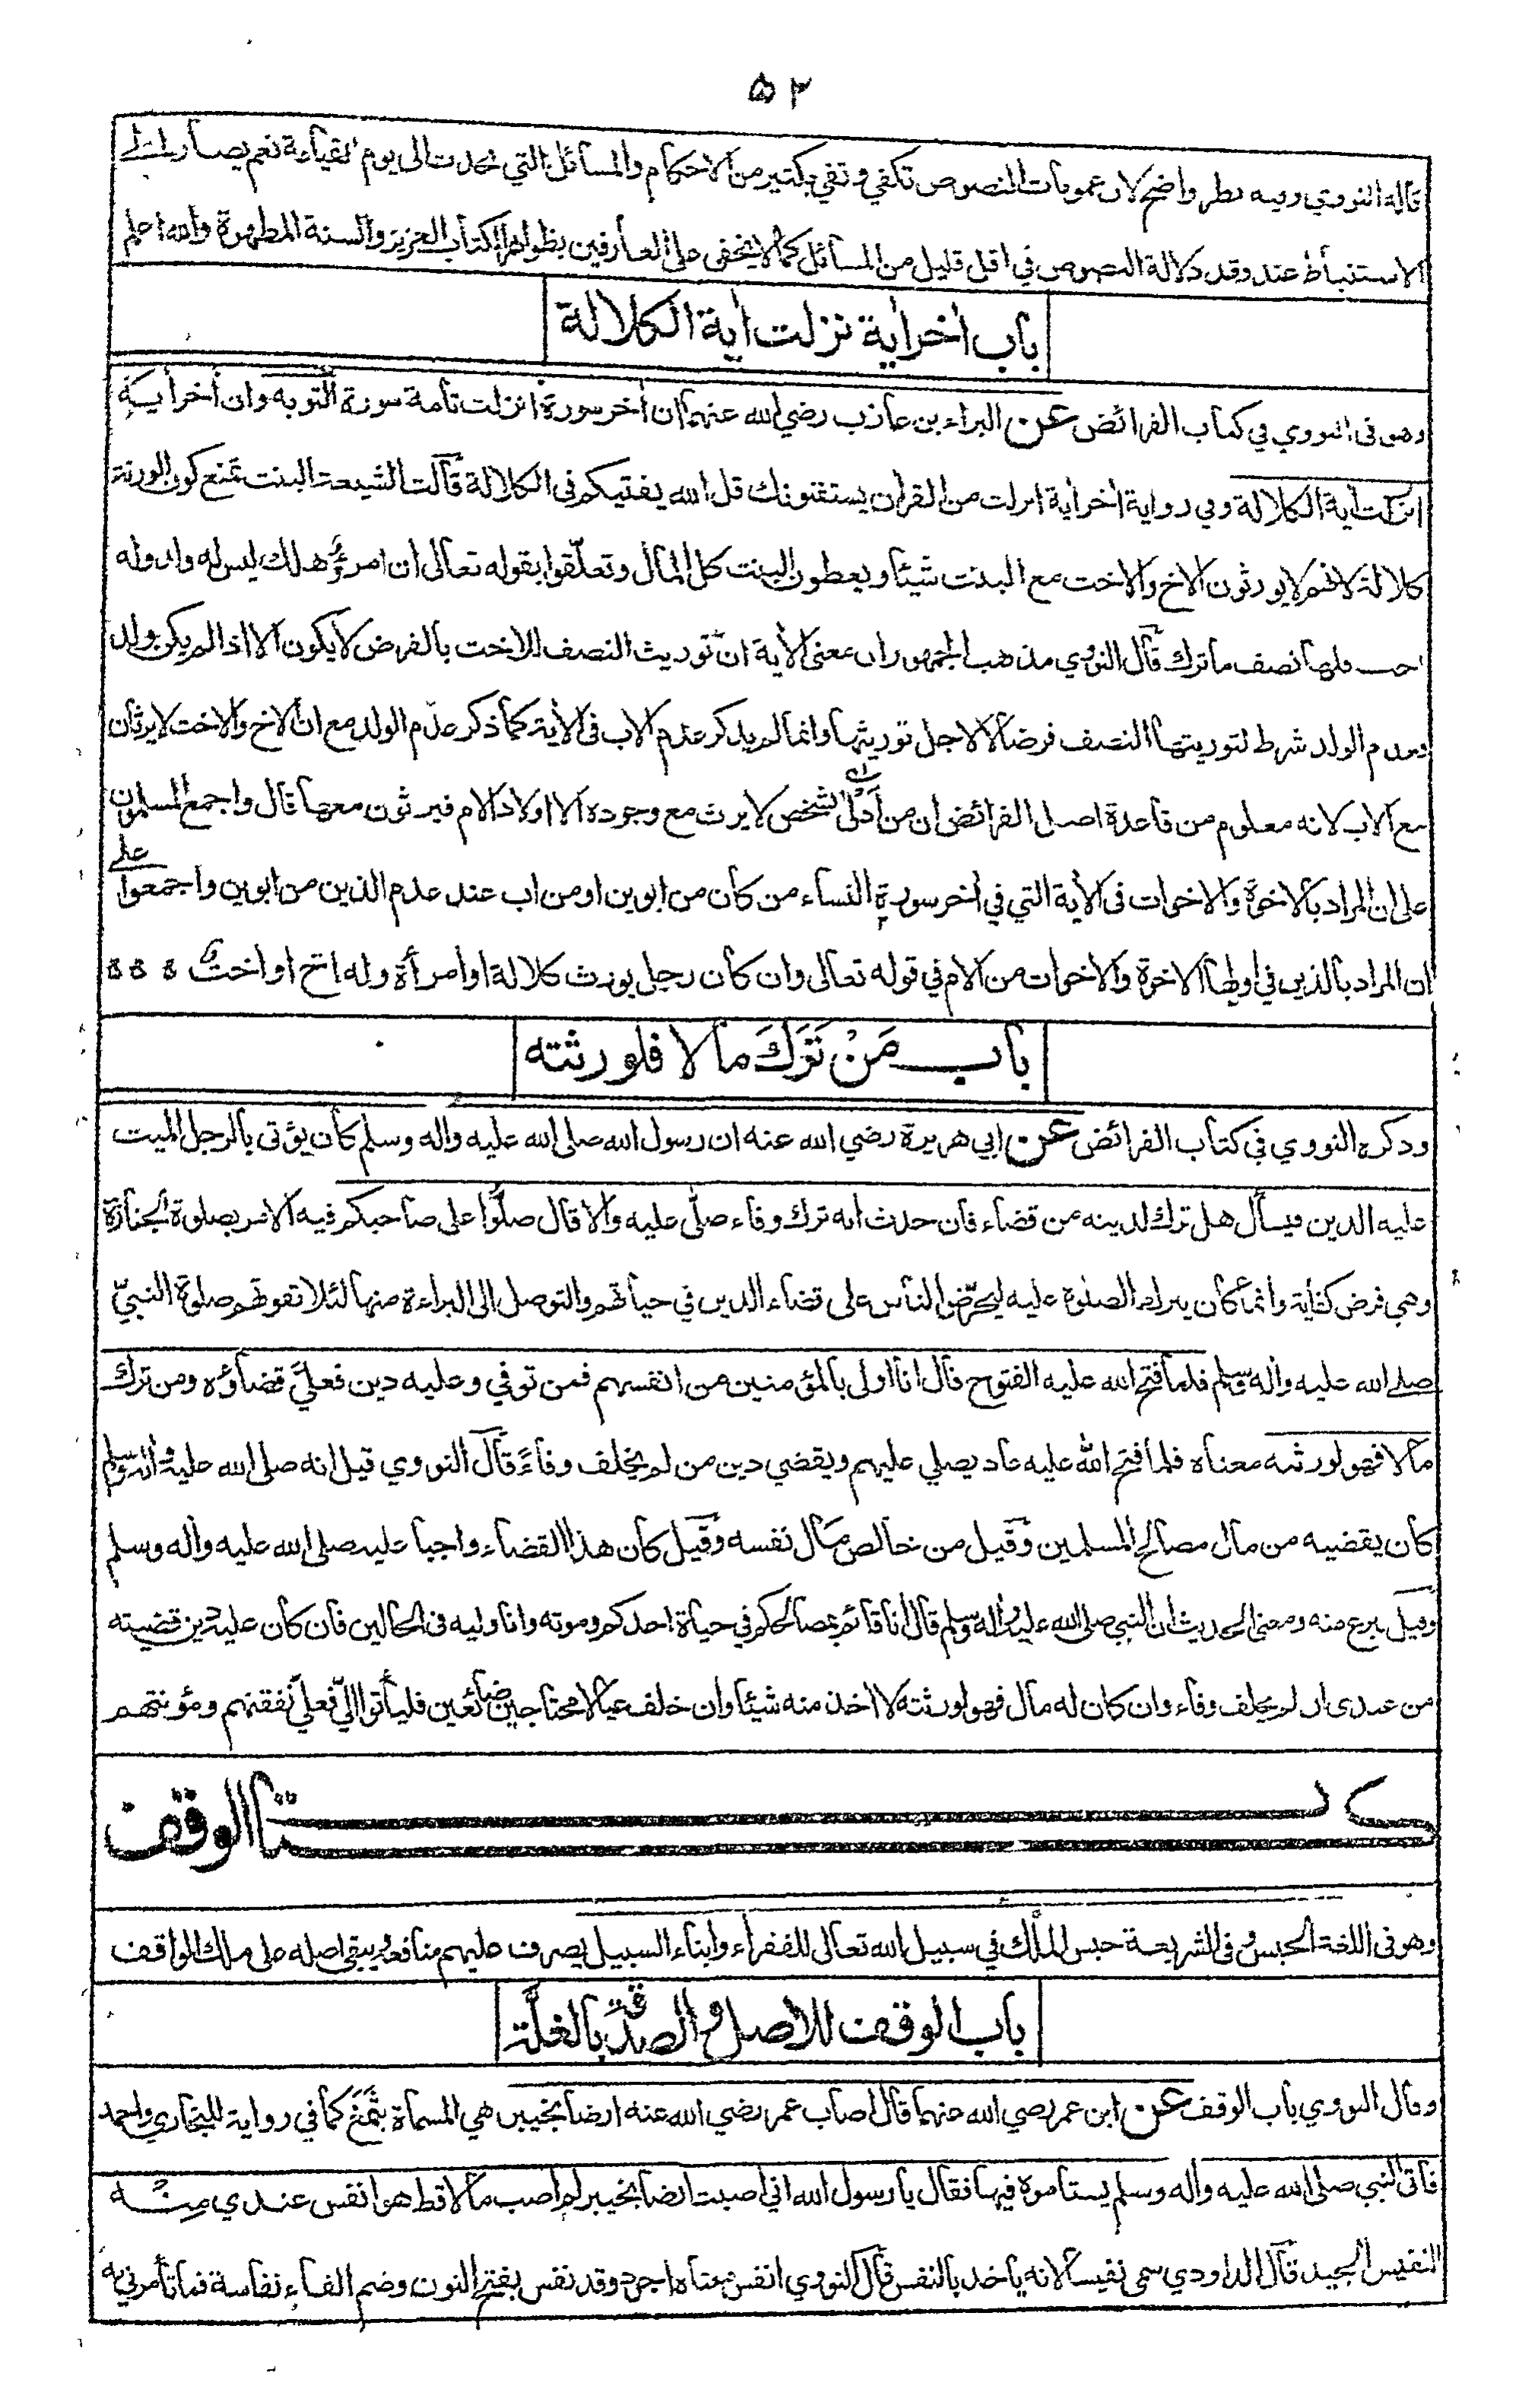 ٥٢
قاله النووي وفيه نظر واضح لان عمومات النصوص تكفي وتفي بكثير من الاحكام والمسائل التي تحدث الى يوم القيامة نعم يصار الى
الاستنباط عند فقد دلالة النصوص في اقل قليل من المسائل كما لا يخفى على العارفين بظواهر الكتاب العزيز والسنة المطهرة والله اعلم
باب أخر أية نزلت أية الكلالة
وهو في النووي في كتاب الفرائض عن البراء بن عازب رضي الله عنهما ان أخر سورة انزلت تامة سورة التوبه وان أخر أية
انزلت أية الكلالة وفي رواية أخر أية انزلت من القرأن يستفتونك قل الله يفتيكم في الكلالة قالت الشيعة البنت تمنع كون الورثة
كلالة لانهم لا يورثون الاخ والاخت مع البنت شيئا ويعطون البنت كل المال وتعلقوا بقوله تعالى ان امرؤ هلك ليس له ولد وله
اخت فلها نصف ما ترك قال النووي مذهب الجمهور ان معنى الأية ان توريث النصف للاخت بالفرض لا يكون الا اذا لم يكن ولد
فعدم الولد شرط لتوريثها النصف فرضا لا لاجل توريثها وانما لم يذكر عدم الاب في الأية كما ذكر عدم الولد مع ان الاخ والاخت لا يرثان
مع الاب لانه معلوم من قاعدة اصل الفرائض ان من أدلى الشخص لا يرث مع وجوده الا اولاد الام فيرثون معها قال واجمع المسلمون
على ان المراد بالاخوة والاخوات في الأية التي في أخر سورة النساء من كان من ابوين او من اب عند عدم الذين من ابوين واجمعوا على
ان المراد بالذين في اولها الاخوة والاخوات من الام في قوله تعالى وان كان رجل يورث كلالة او امرأة وله اخ او اخت
باب مَنْ تَرَكَ مالا فلورثته
وذكره النووي في كتاب الفرائض عن ابي هريرة رضي الله عنه ان رسول الله صلى الله عليه واله وسلم كان يؤتى بالرجل الميت
عليه الدين فيسأل هل ترك لدينه من قضاء فان حدث انه ترك وفاء صلّى عليه والا قال صلّوا على صاحبكم فيه الامر بصلوة الجنازة
وهي فرض كفاية وانما كان يترك الصلوة عليه ليحرّض الناس على قضاء الدين في حياتهم والتوصل الى البراءة منها لئلا تفوتهم صلوة النبيّ
صلى الله عليه واله وسلم فلما فتح الله عليه الفتوح قال انا اولى بالمؤمنين من انفسهم فمن توفي وعليه دين فعليَّ قضاؤه ومن ترك
مالا فهو لورثته معناه فلما فتح الله عليه عاد يصلي عليهم ويقضي دين من لم يخلف وفاءً قال النووي قيل انه صلى الله عليه واله وسلم
كان يقضيه من مال مصالح المسلمين وقيل من خالص مال نفسه وقيل كان هذا القضاء واجبا عليه صلى الله عليه واله وسلم
وقيل تبرع منه ومعنى الحديث ان النبي صلى الله عليه واله وسلم قال انا قائم بمصالحكم في حياة احدكم وموته وانا وليه في الحالين فان كان عليه دين قضيته
من عندي ان لم يخلف وفاء وان كان له مال فهو لورثته لا أخذ منه شيئا وان خلف عيالا محتاجين ضائعين فليأتوا اليّ فعليّ نفقتهم ومؤنتهم
كتاب الوقف
وهو في اللغة الحبس وفي الشريعة حبس الملك في سبيل الله تعالى للفقراء وابناء السبيل يصرف عليهم منافعه ويبقى اصله على ملك الواقف
باب الوقف للاصل والصدقة بالغلّة
وقال النووي باب الوقف عن ابن عمر رضي الله عنهما قال اصاب عمر رضي الله عنه ارضا بخيبر هي المسماة بثَمْغَ كما في رواية للبخاري واحمد
فاتى النبي صلى الله عليه واله وسلم يستأمره فيها فقال يا رسول الله اني اصبت ارضا بخيبر لم اصب مالا قط هو انفس عندي منه
النفيس الجيد قال الداودي سمي نفيسا لانه يأخذ بالنفس قال النووي انفس معناه اجود وقد نفس بفتح النون وضم الفاء نفاسة فما تأمرني به